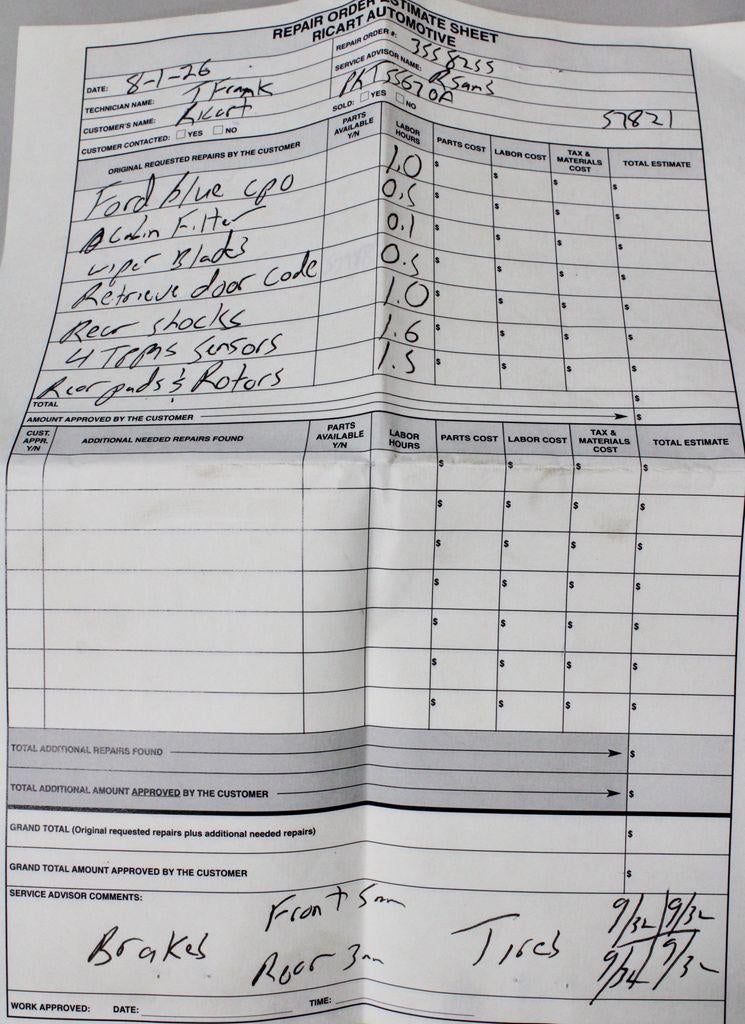 REPAIR ORDER ESTIMATE SHEET
RICART AUTOMOTIVE
DATE: 8-1-26
REPAIR ORDER #: 3558255
TECHNICIAN NAME: T Frank
SERVICE ADVISOR NAME: R Sams
CUSTOMER'S NAME: Ricart
PKT55670A
CUSTOMER CONTACTED: YES NO
SOLD: YES NO
57821
ORIGINAL REQUESTED REPAIRS BY THE CUSTOMER PARTS AVAILABLE Y/N LABOR HOURS PARTS COST LABOR COST TAX & MATERIALS COST TOTAL ESTIMATE
Ford blue cpo 1.0 $ $ $ $
Cabin Filter 0.5 $ $ $ $
wiper Blades 0.1 $ $ $ $
Retrieve door code 0.5 $ $ $ $
Rear shocks 1.0 $ $ $ $
4 TPMS Sensors 1.6 $ $ $ $
Rear pads & Rotors 1.5 $ $ $ $
TOTAL $
AMOUNT APPROVED BY THE CUSTOMER $
CUST. APPR. Y/N ADDITIONAL NEEDED REPAIRS FOUND PARTS AVAILABLE Y/N LABOR HOURS PARTS COST LABOR COST TAX & MATERIALS COST TOTAL ESTIMATE
$ $ $ $
$ $ $ $
$ $ $ $
$ $ $ $
$ $ $ $
$ $ $ $
$ $ $ $
TOTAL ADDITIONAL REPAIRS FOUND $
TOTAL ADDITIONAL AMOUNT APPROVED BY THE CUSTOMER $
GRAND TOTAL (Original requested repairs plus additional needed repairs) $
GRAND TOTAL AMOUNT APPROVED BY THE CUSTOMER $
SERVICE ADVISOR COMMENTS:
Brakes Front 5mm
Rear 3mm
Tires 9/32 9/32
9/32 9/32
WORK APPROVED: DATE: TIME: